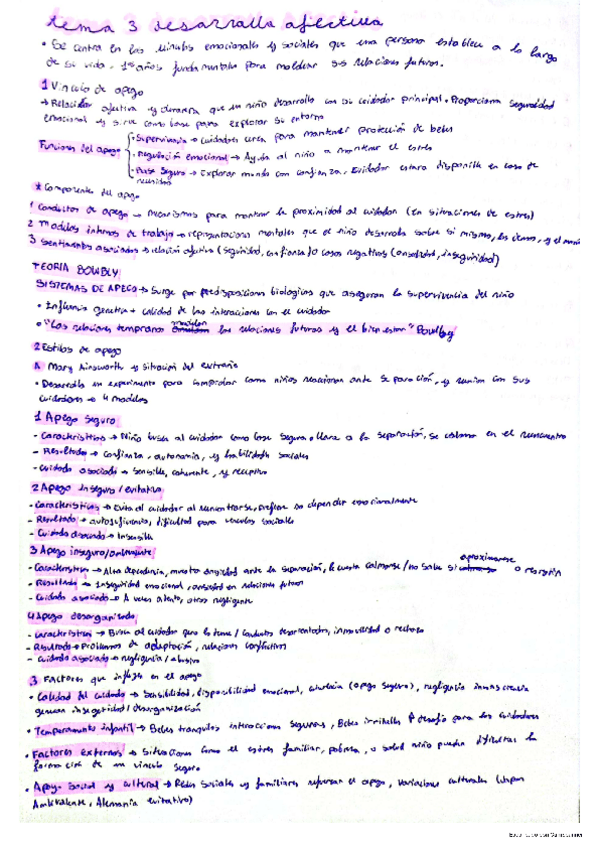 tema 3 desarrollo afectivo
• Se centra en los vínculos emocionales y sociales que una persona establece a lo largo
de su vida. 1ºs años fundamentales para moldear sus relaciones futuras.
1 Vínculo de apego
→ Relación afectiva y duradera que un niño desarrolla con su cuidador principal. Proporciona seguridad
emocional y sirve como base para explorar su entorno
Funciones del apego
• Supervivencia → cuidadores cerca para mantener protección de bebés
• Regulación emocional → Ayuda al niño a mantener el estrés
• Base Segura → Explorar mundo con confianza, Cuidador estara disponible en caso de
necesidad
* Componentes del apego
1 Conductas de apego → mecanismos para mantener la proximidad al cuidador (en situaciones de estres)
2 Modelos internos de trabajo → representaciones mentales que el niño desarrolla sobre si mismo, los demas, y el mundo
3 Sentimientos asociados → relación afectiva (seguridad, confianza) o cosas negativas (ansiedad, inseguridad)
TEORIA BOWLBY
SISTEMAS DE APEGO → Surge por predisposiciones biologicas que aseguran la supervivencia del niño
• Influencia genetica + calidad de las interacciones con el cuidador
• "Las relaciones tempranas modelan las relaciones futuras y el bienestar" Bowlby
2 Estilos de apego
Mary Ainsworth y situación del extraño
• Desarrolla un experimento para comprobar como niños reaccionan ante separación, y reunion con sus
cuidadores → 4 modelos
1 Apego seguro
- Características → Niño busca al cuidador como base segura, llora a la separación, se calma en el reencuentro
- Resultados → confianza, autonomia, y habilidades sociales
- cuidado asociado → sensible, coherente, y receptivo
2 Apego inseguro/evitativo
- Características → Evita al cuidador al reencontrarse, prefiere no depender emocionalmente
- Resultado → autosuficiencia, dificultad para vinculos sociales
- Cuidado asociado → Insensible
3 Apego inseguro/ambivalente
- Características → Alta dependencia, muestra ansiedad ante la separación, le cuesta calmarse/no sabe si aproximarse o resistirse
- Resultado → Inseguridad emocional, ansiedad en relaciones futuras
- Cuidado asociado → A veces atento, otras negligente
4 Apego desorganizado
- Características → Busca al cuidador pero lo teme/conductas desorientadas, inmovilidad o rechazo
- Resultado → Problemas de adaptación, relaciones conflictivas
- cuidado asociado → negligencia/abusivo
3 Factores que influyen en el apego
• Calidad del cuidado → Sensibilidad, disponibilidad emocional, coherencia (apego seguro), negligencia
generan inseguridad/desorganización
• Temperamento infantil → Bebes tranquilos interacciones seguras, Bebes irritables ↑ desafio para los cuidadores
• Factores externos → Situaciones como el estres familiar, pobreza, o salud niño pueden dificultar la
formación de un vinculo seguro.
• Apoyo social y cultural → Redes sociales y familiares refuerzan el apego, variaciones culturales (Japon
Ambivalente, Alemania evitativo)